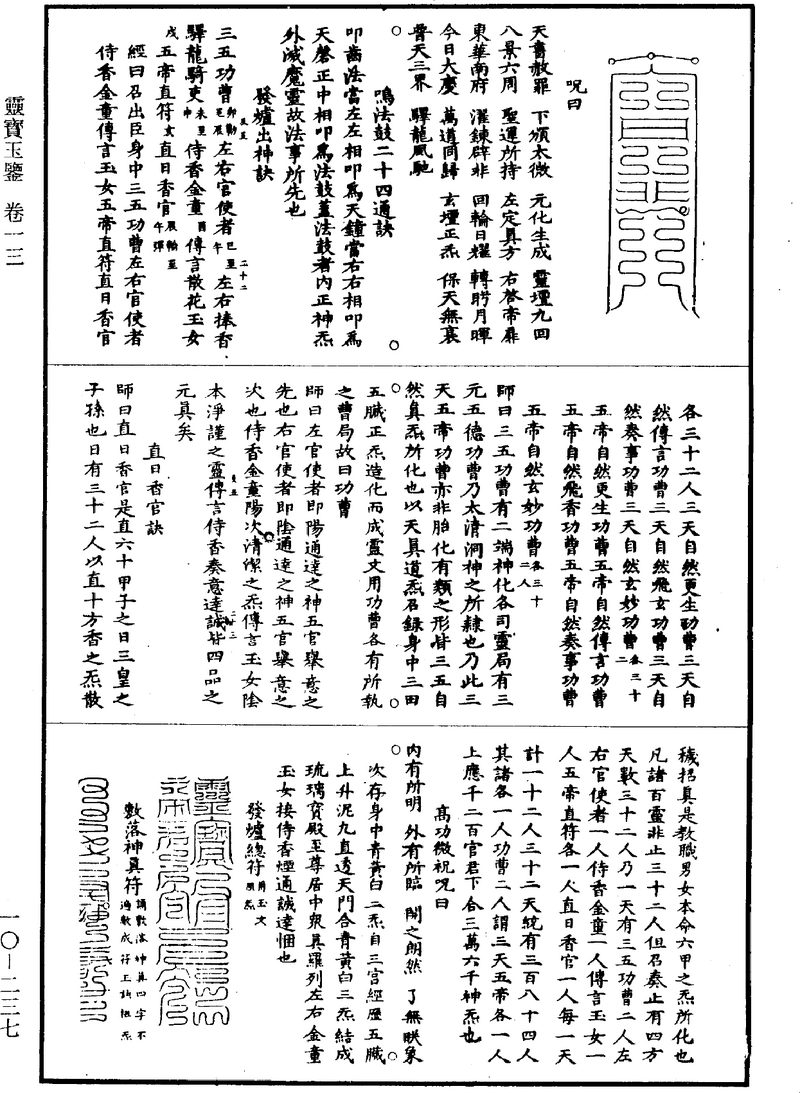 靈寶玉鑒 卷一三
一〇—二三七
咒曰
天書赦罪 下頒太微 元化生成 靈壇九回
八景六周 聖運所持 左定真方 右啓帝扉
東華南府 濯鍊辟非 回輪日耀 轉眄月暉
今日大慶 萬道同歸 玄壇正炁 保天無衰
普天三界 驛龍風馳
鳴法鼓二十四通訣
叩齒法當左左相叩爲天鐘當右右相叩爲
天磬正中相叩爲法鼓蓋法鼓者內正神炁
外滅魔靈故法事所先也
發爐出神訣
三五功曹左右官使者左右捧香
驛龍騎吏侍香金童傳言散花玉女
五帝直符直日香官
經曰召出臣身中三五功曹左右官使者
侍香金童傳言玉女五帝直符直日香官
各三十二人三天自然更生功曹三天自
然傳言功曹三天自然飛玄功曹三天自
然奏事功曹三天自然玄妙功曹各三十二
五帝自然更生功曹五帝自然傳言功曹
五帝自然飛香功曹五帝自然奏事功曹
五帝自然玄妙功曹各三十二人
師曰三五功曹有二端神化各司靈局有三
元五德功曹乃太清洞神之所隸也乃此三
天五帝功曹亦非胎化有類之形皆三五自
然真炁所化也以天真道炁召錄身中三田
五臟正炁造化而成靈文用功曹各有所執
之曹局故曰功曹
師曰左官使者即陽通達之神五官舉意之
先也右官使者即陰通達之神五官舉意之
次也侍香金童陽次清潔之炁傳言玉女陰
本淨謹之靈傳言侍香奏意達誠皆四品之
元真矣
直日香官訣
師曰直日香官是直六十甲子之日三皇之
子孫也日有三十二人以直十方香之炁散
穢招真是教職男女本命六甲之炁所化也
凡諸百靈非止三十二人但召奏止有四方
天數三十二人乃一天有三五功曹二人左
右官使者一人侍香金童一人傳言玉女一
人五帝直符各一人直日香官一人每一天
計一十二人三十二天統有三百八十四人
其諸各一人功曹二人謂三天五帝各一人
上應千二百官君下合三萬六千神炁也
高功微祝咒曰
內有所明 外有所臨 閉之朗然 了無眹象
次存身中青黃白二炁自三宮經歷五臟
上升泥丸直透天門合青黃白三炁結成
琉璃寶殿至尊居中衆真羅列左右金童
玉女接侍香煙通誠達悃也
發爐總符
敷落神真符